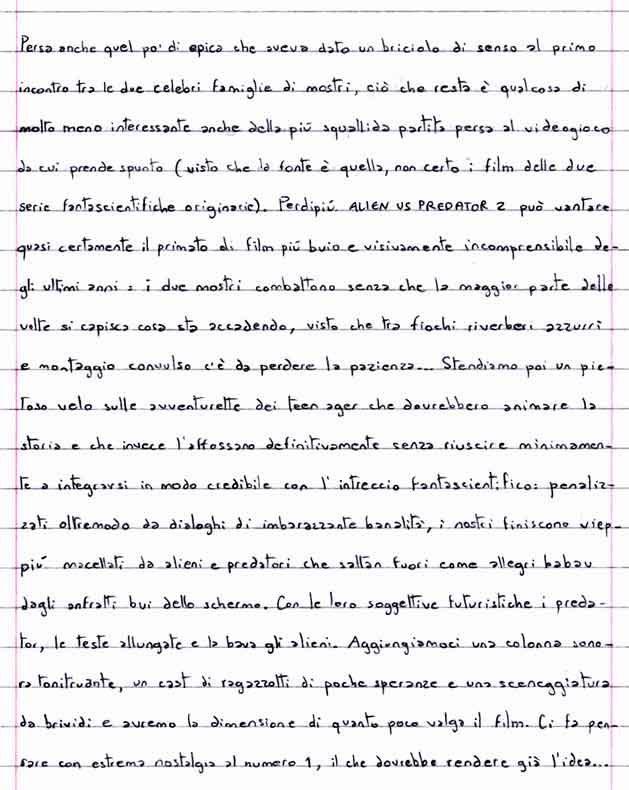 Persa anche quel po' di epica che aveva dato un briciolo di senso al primo
incontro tra le due celebri famiglie di mostri, ciò che resta è qualcosa di
molto meno interessante anche della più squallida partita persa al videogioco
da cui prende spunto (visto che la fonte è quella, non certo i film delle due
serie fantascientifiche originarie). Perdipiù ALIEN VS PREDATOR 2 può vantare
quasi certamente il primato di film più buio e visivamente incomprensibile de-
gli ultimi anni: i due mostri combattono senza che la maggior parte delle
volte si capisca cosa sta accadendo, visto che tra fiochi riverberi azzurri
e montaggio convulso c'è da perdere la pazienza... Stendiamo poi un pie-
toso velo sulle avventurette dei teen ager che dovrebbero animare la
storia e che invece l'affossano definitivamente senza riuscire minimamen-
te a integrarsi in modo credibile con l'intreccio fantascientifico: penaliz-
zati oltremodo da dialoghi di imbarazzante banalità, i nostri finiscono viep-
più macellati da alieni e predatori che saltan fuori come allegri babau
dagli anfratti bui dello schermo. Con le loro soggettive futuristiche i preda-
tor, le teste allungate e la bava gli alieni. Aggiungiamoci una colonna sono-
ra tonitruante, un cast di ragazzotti di poche speranze e una sceneggiatura
da brividi e avremo la dimensione di quanto poco valga il film. Ci fa pen-
sare con estrema nostalgia al numero 1, il che dovrebbe rendere già l'idea...